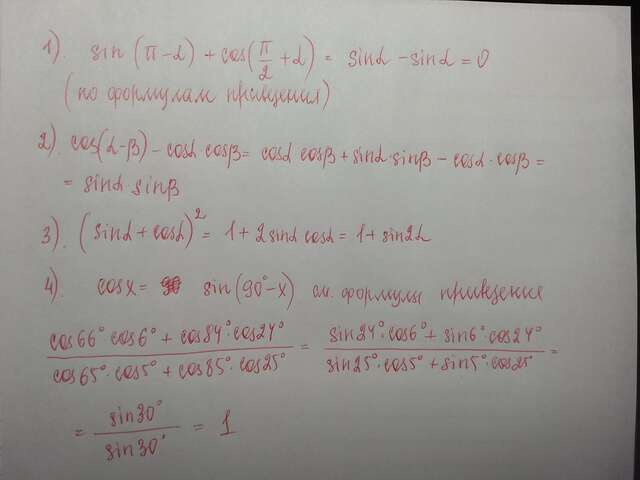 1). sin (π-α) + cos(π/2 + α) = sinα - sinα = 0
(по формулам приведения)
2). cos(α-β) - cosα cosβ = cosα cosβ + sinα·sinβ - cosα·cosβ =
= sinα sinβ
3). (sinα + cosα)² = 1 + 2sinα cosα = 1 + sin2α
4). cosx = sin(90°-x) см. формулы приведения
(cos66° cos6° + cos84°·cos24°)/(cos65°·cos5° + cos85°·cos25°) = (sin24°·cos6° + sin6°·cos24°)/(sin25°·cos5° + sin5°·cos25°) =
= sin30°/sin30° = 1